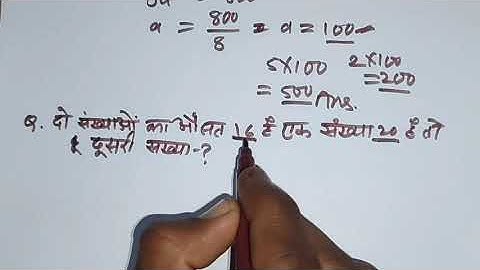 a = 800/8 = a = 100
5×100 2×100
= 500 Ans. = 200
Q. दो संख्याओं का औसत 16 है एक संख्या 20 है तो
दूसरी संख्या-?